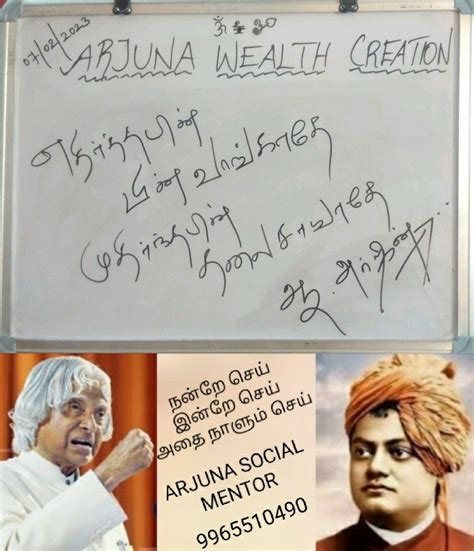 07/02/2023
ARJUNA WEALTH CREATION
எதிர்த்தபின்
பின் வாங்காதே
முதிர்ந்தபின்
தலைசாயாதே
நன்றே செய்
இன்றே செய்
அதை நாளும் செய்
ARJUNA SOCIAL
MENTOR
9965510490